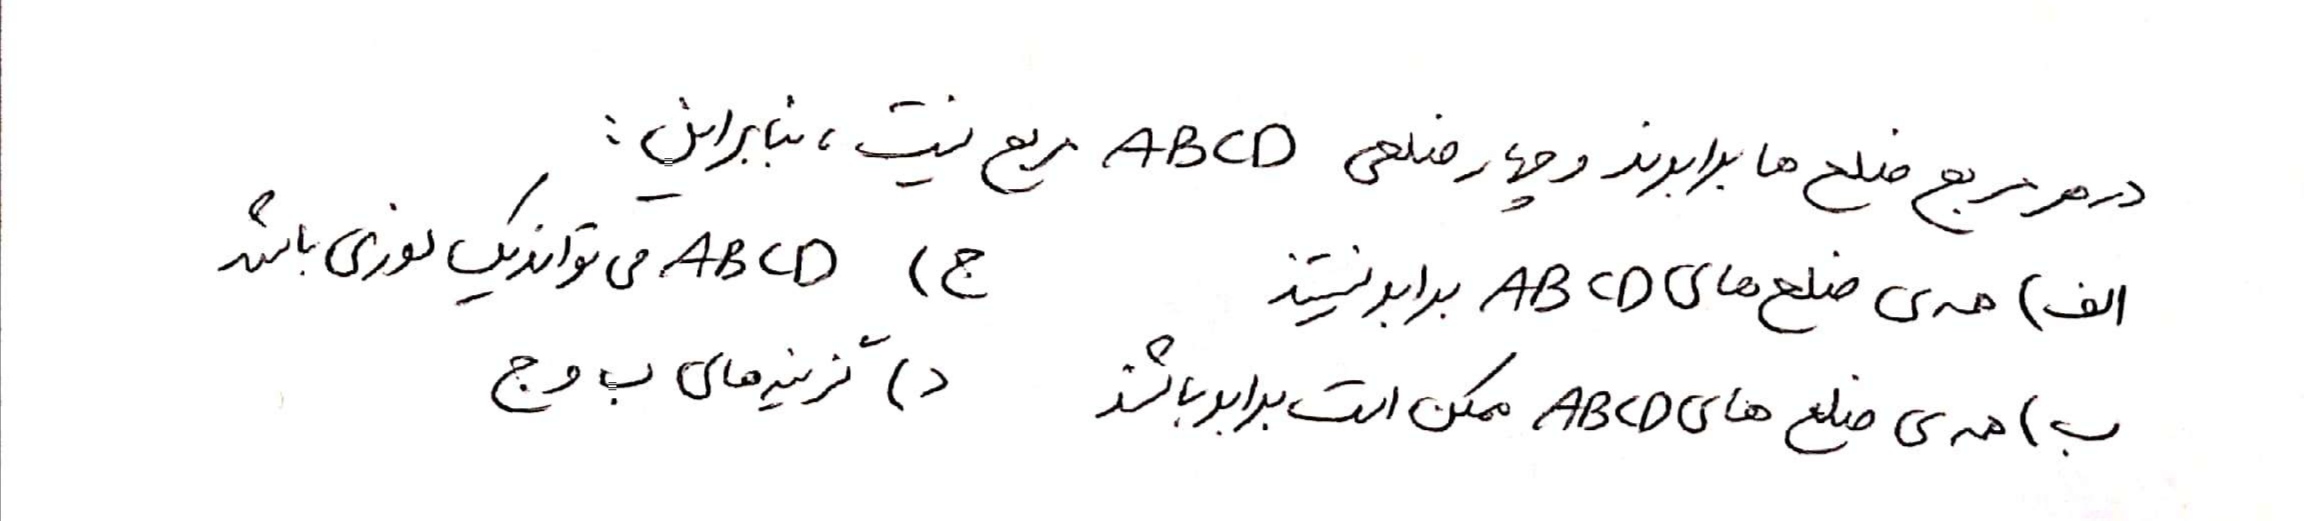 در هر مربع ضلع ها برابرند و چهار ضلعی ABCD مربع نیست ، بنابراین :
الف) همه ی ضلع های ABCD برابر نیستند ج) ABCD می تواند یک لوزی باشد
ب) همه ی ضلع های ABCD ممکن است برابر باشند د) گزینه های ب و ج